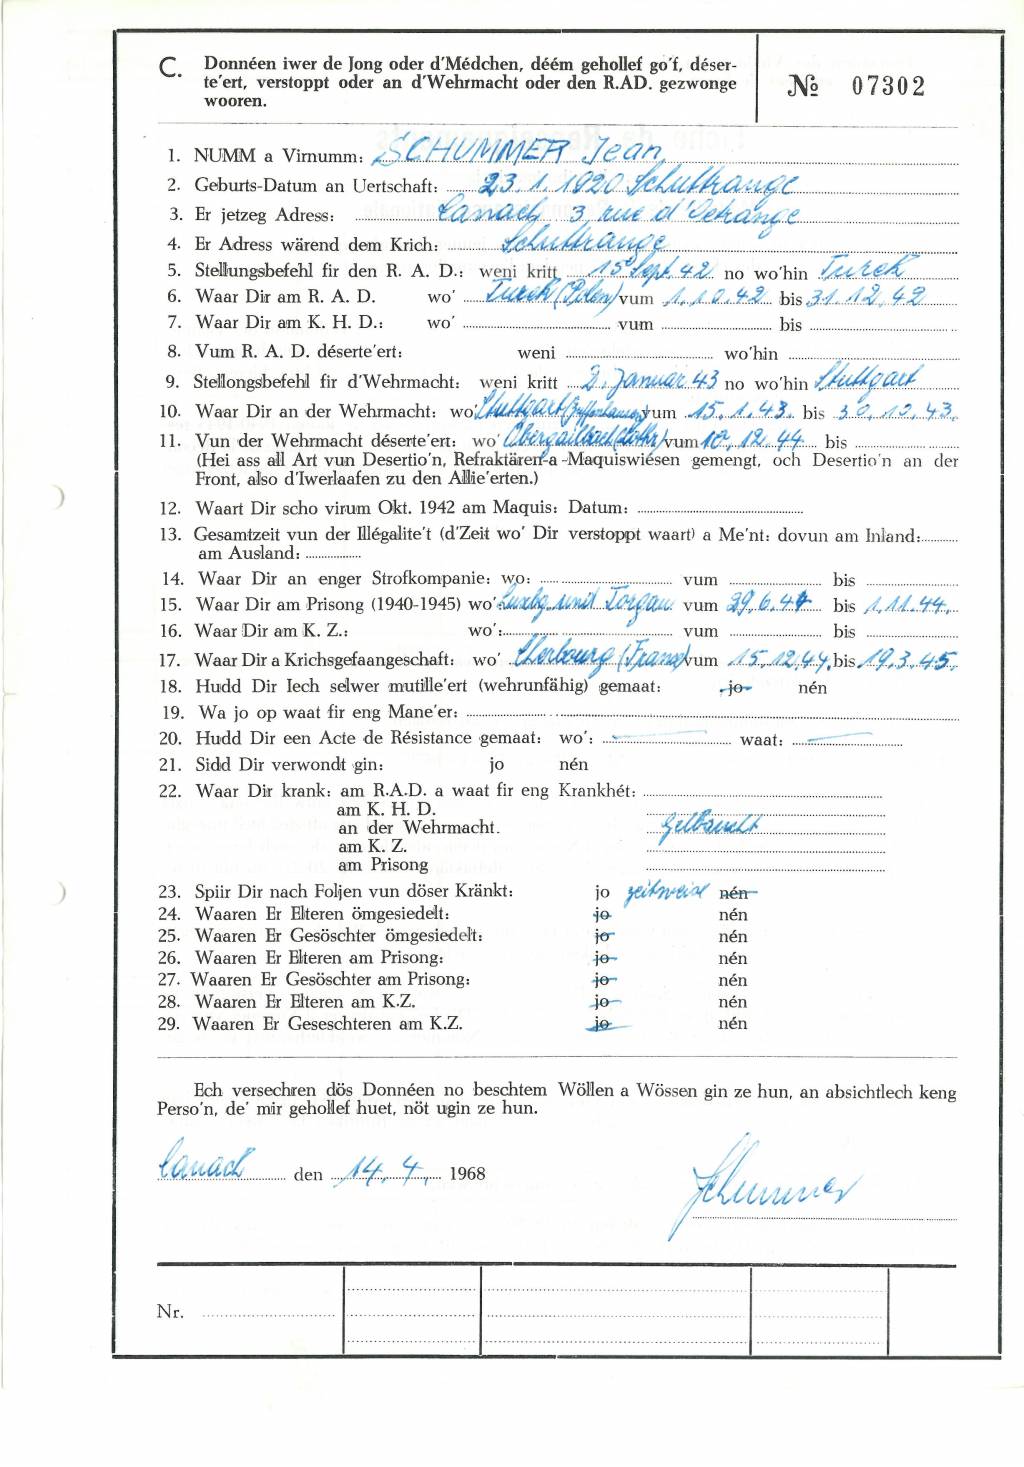 C. Donnéen iwer de Jong oder d'Médchen, déém gehollef go'f, déser-
te'ert, verstoppt oder an d'Wehrmacht oder den R.AD. gezwonge
wooren.
№ 07302
1. NUMM a Virnumm: SCHUMMER Jean
2. Geburts-Datum an Uertschaft: 23.1.1920 Schuttrange
3. Er jetzeg Adress: Canach 3 rue d'Oetrange
4. Er Adress wärend dem Krich: Schuttrange
5. Stellungsbefehl fir den R. A. D.: weni kritt 15 Sept. 42 no wo'hin Turek
6. Waar Dir am R. A. D. wo' Turek (Polen) vum 1.10.42 bis 31.12.42
7. Waar Dir am K. H. D.: wo' vum bis
8. Vum R. A. D. déserte'ert: weni wo'hin
9. Stellongsbefehl fir d'Wehrmacht: weni kritt 2. Januar 43 no wo'hin Stuttgart
10. Waar Dir an der Wehrmacht: wo' Stuttgart (Zuffenhausen) vum 15.1.43. bis 30.10.43.
11. Vun der Wehrmacht déserte'ert: wo' Obergailbach (Lothr) vum 10.12.44 bis
(Hei ass all Art vun Desertio'n, Refraktären-a-Maquiswiesen gemengt, och Desertio'n an der
Front, also d'Iwerlaafen zu den Allie'erten.)
12. Waart Dir scho virum Okt. 1942 am Maquis: Datum:
13. Gesamtzeit vun der Illégalite't (d'Zeit wo' Dir verstoppt waart) a Me'nt: dovun am Inland:
am Ausland:
14. Waar Dir an enger Strofkompanie: wo: vum bis
15. Waar Dir am Prisong (1940-1945) wo': Luxbg. und Torgau vum 29.6.44 bis 1.11.44.
16. Waar Dir am K. Z.: wo': vum bis
17. Waar Dir a Krichsgefaangeschaft: wo' Cherbourg (Frans) vum 15.12.44. bis 19.3.45.
18. Hudd Dir Iech selwer mutille'ert (wehrunfähig) gemaat: jo nén
19. Wa jo op waat fir eng Mane'er:
20. Hudd Dir een Acte de Résistance gemaat: wo': waat:
21. Sidd Dir verwondt gin: jo nén
22. Waar Dir krank: am R.A.D. a waat fir eng Krankhét:
am K. H. D.
an der Wehrmacht. Gelbsucht
am K. Z.
am Prisong
23. Spiir Dir nach Foljen vun döser Kränkt: jo zeitweise nén
24. Waaren Er Elteren ömgesiedelt: jo nén
25. Waaren Er Gesöschter ömgesiedelt: jo nén
26. Waaren Er Elteren am Prisong: jo nén
27. Waaren Er Gesöschter am Prisong: jo nén
28. Waaren Er Elteren am K.Z. jo nén
29. Waaren Er Geseschteren am K.Z. jo nén
Ech versechren dös Donnéen no beschtem Wöllen a Wössen gin ze hun, an absichtlech keng
Perso'n, de' mir gehollef huet, nöt ugin ze hun.
Canach den 14.4. 1968
Schummer
Nr.